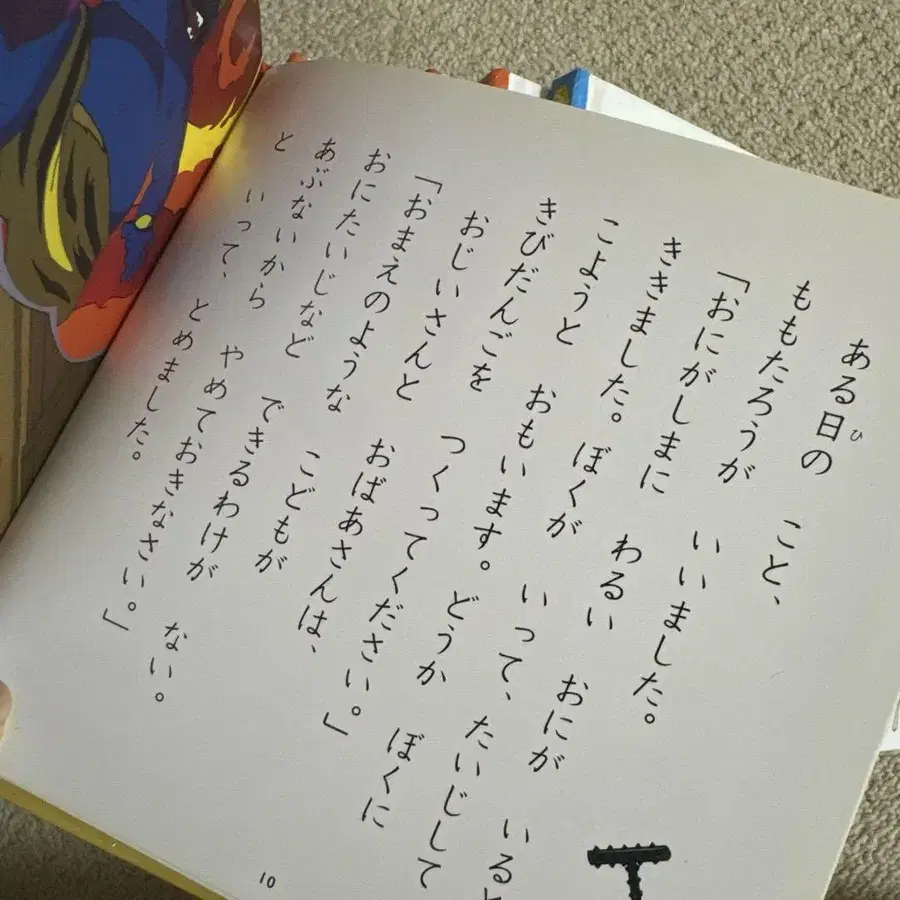 ある日の　こと、
ひ
ももたろうが　いいました。
「おにがしまに　わるい　おにが　いると
ききました。ぼくが　いって、たいじして
こようと　おもいます。どうか　ぼくに
きびだんごを　つくってください。」
おじいさんと　おばあさんは、
「おまえのような　こどもが
おにたいじなど　できるわけが　ない。
あぶないから　やめておきなさい。」
と　いって、とめました。
10